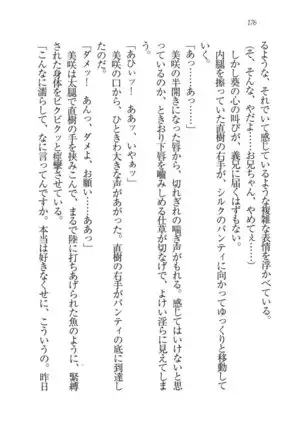 176
るような、それでいて感じているような複雑な表情を浮かべている。
（そ、そんな、やだよ……お兄ちゃん、やめてぇ……）
しかし葵の心の叫びが、義兄に届くはずもない。
内腿を擦っていた直樹の右手が、シルクのパンティに向かってゆっくりと移動して
いく。
「あっ……あああっ」
美咲の半開きになった唇から、切れぎれの喘ぎ声がもれる。感じてはいけないと思
っているのだろう、ときおり下唇を嚙みしめる仕草が切なげで、よけい淫らに見えてしま
う。
「あひぃッ！　あっ、いやぁッ」
美咲の口から、ひときわ大きな声があがった。直樹の右手がパンティの底に到達し
たのだ。
「ダメッ！　あんっ、ダメよ、お願い……ああっ」
美咲は太腿で直樹の手を挟みこんで、まるで陸に打ちあげられた魚のように、緊縛
された身体をビクビクッと痙攣させている。
「こんなに濡らして、なに言ってんですか。本当は好きなくせに、こういうの。昨日